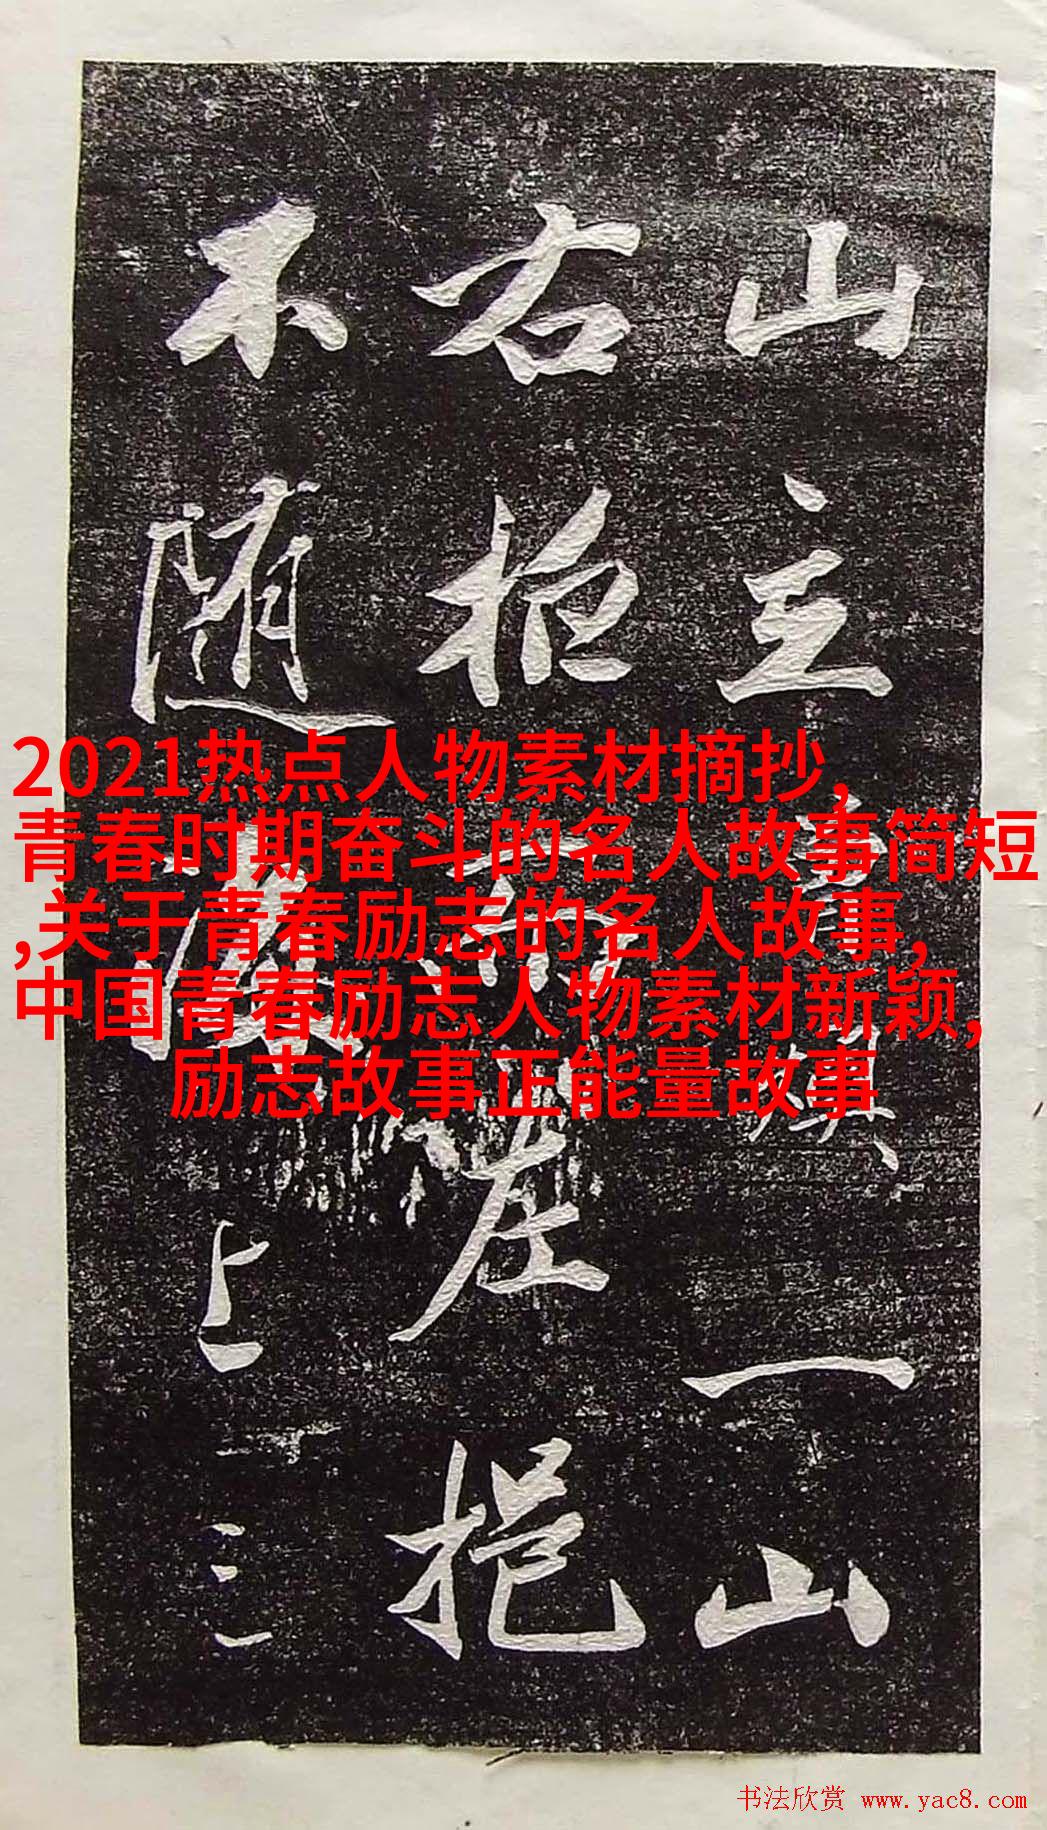 山主一山
右左挹
不随上三
2021热点人物素材摘抄,
青春时期奋斗的名人故事简短
,关于青春励志的名人故事,
中国青春励志人物素材新颖,
励志故事正能量故事
书法欣赏 www.yac8.com